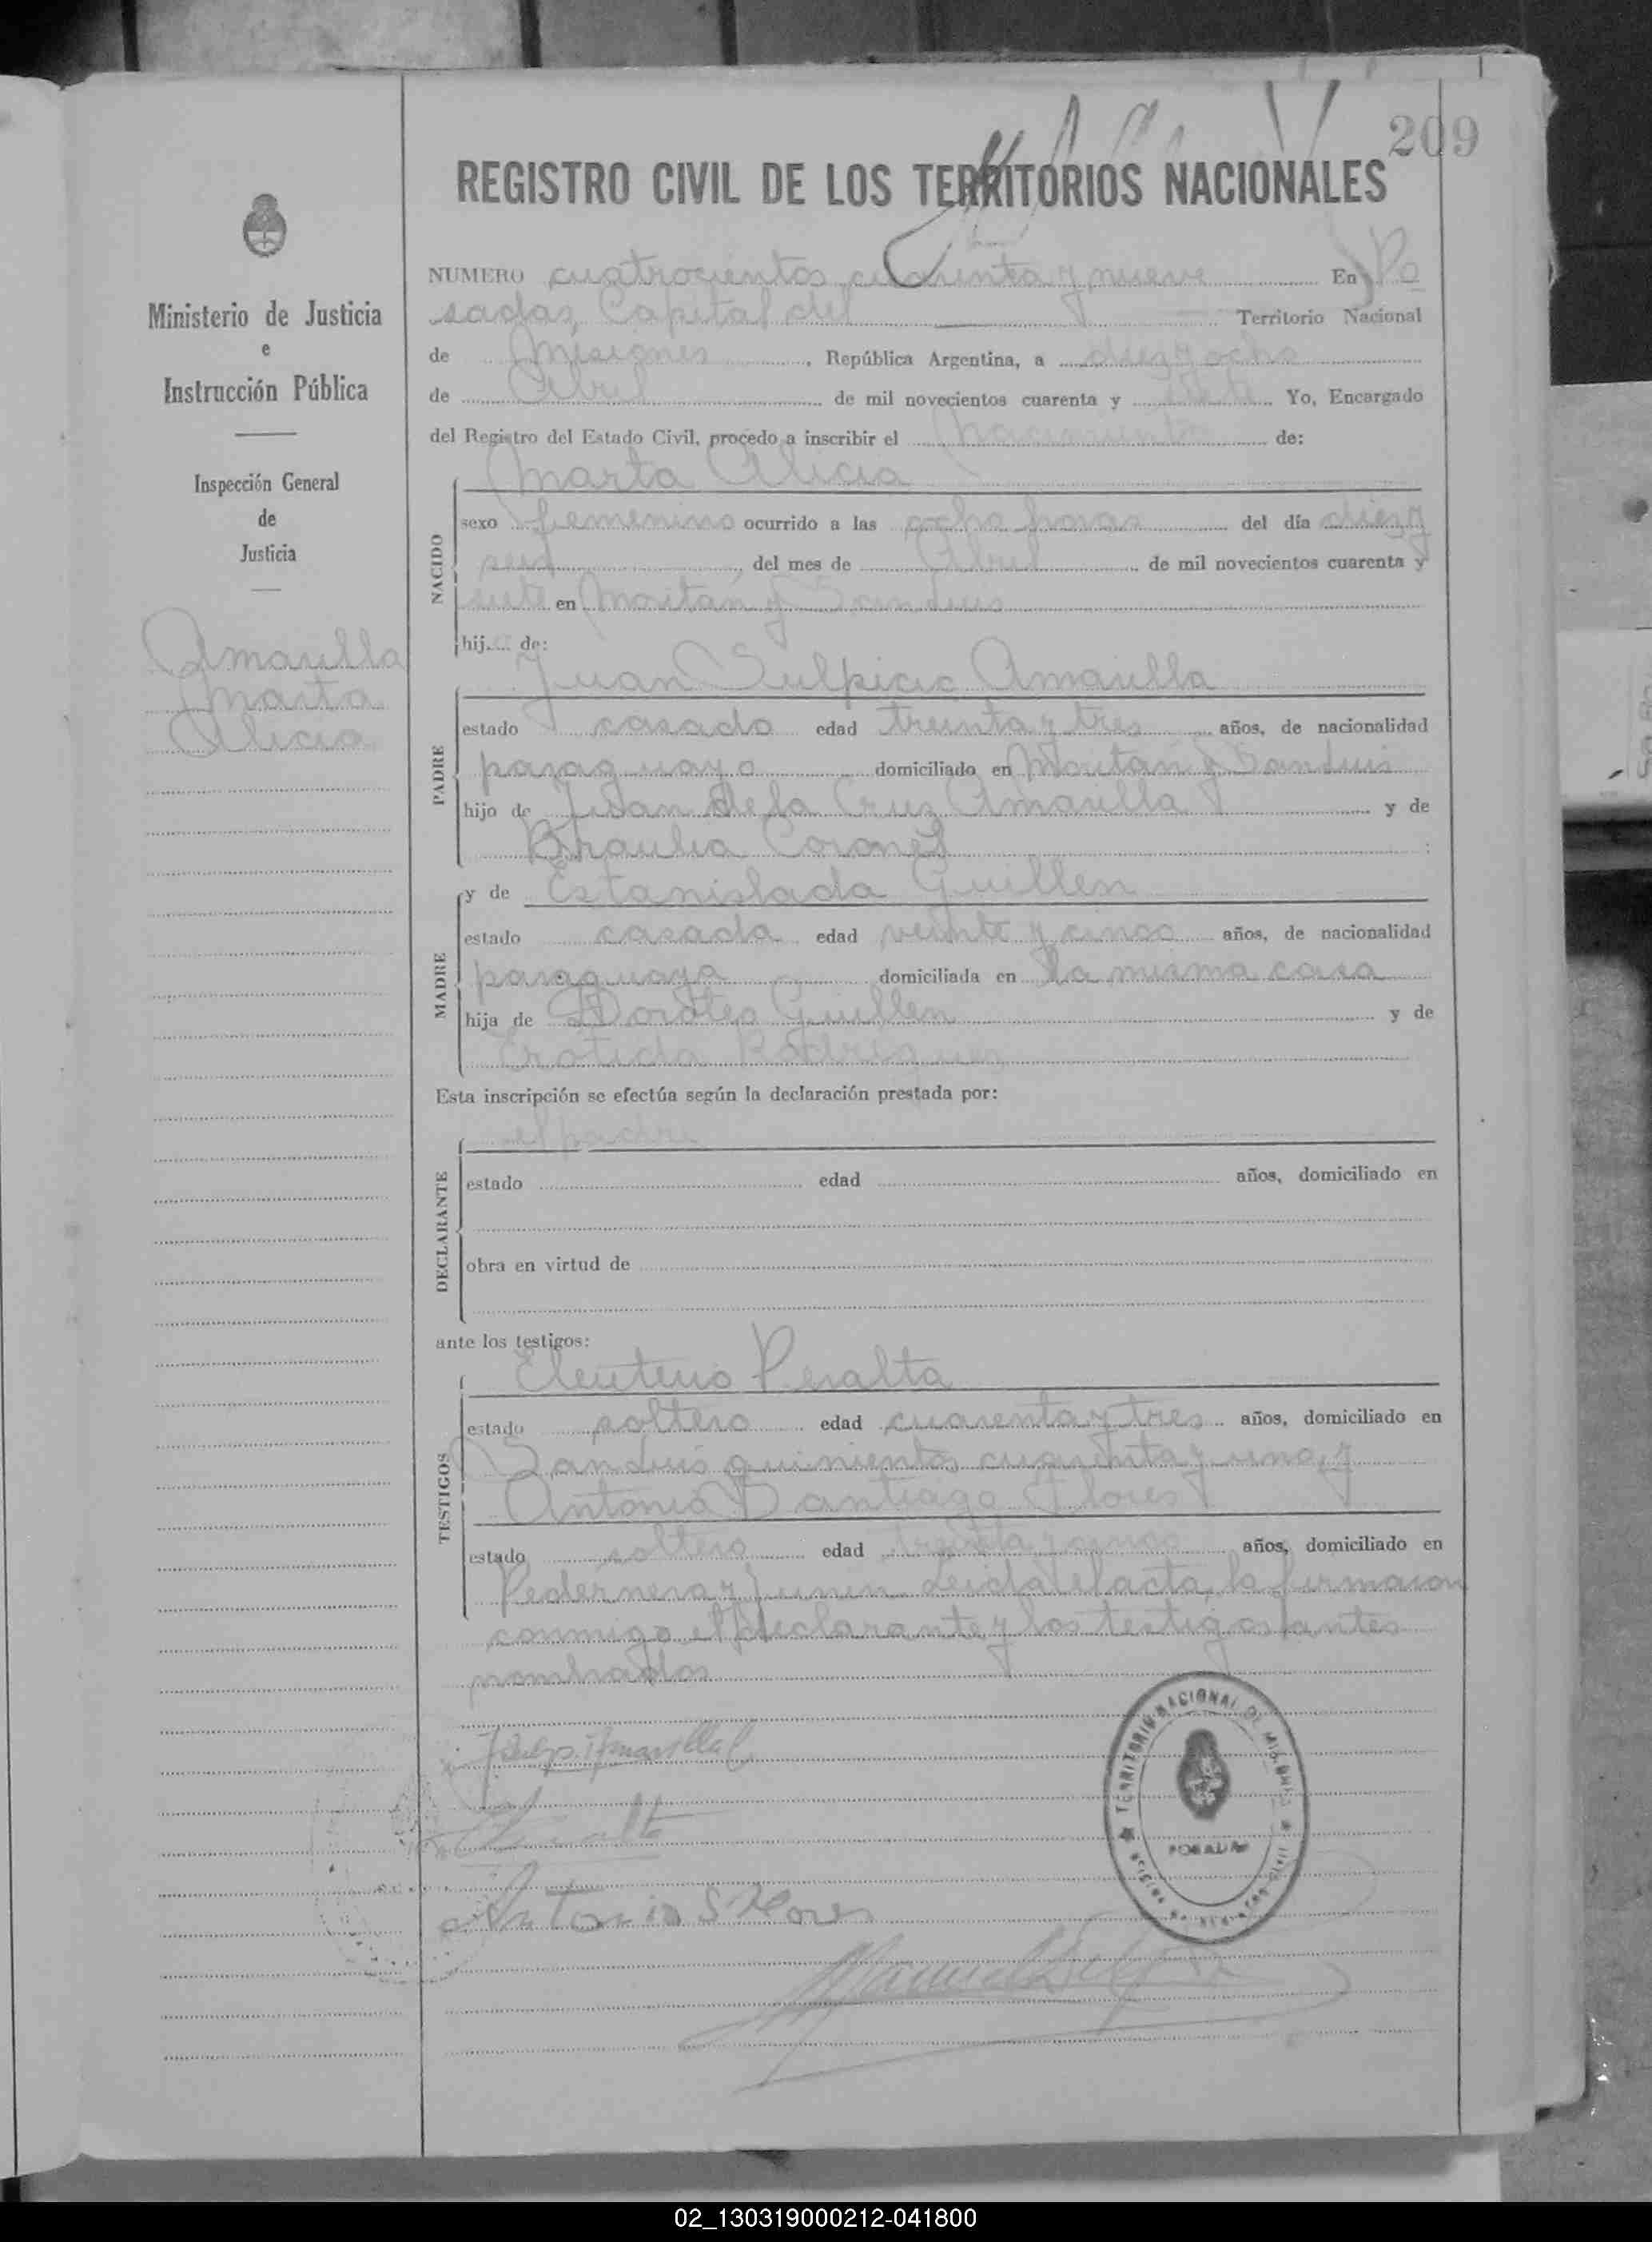 209
REGISTRO CIVIL DE LOS TERRITORIOS NACIONALES
Ministerio de Justicia
e
Instrucción Pública
Inspección General
de
Justicia
Amarilla
Marta
Alicia
NUMERO cuatrocientos cuarenta y nueve En Po
sadas, Capital del Territorio Nacional
de Misiones, República Argentina, a diez y ocho
de Abril de mil novecientos cuarenta y siete Yo, Encargado
del Registro del Estado Civil, procedo a inscribir el nacimiento de:
Marta Alicia
NACIDO
sexo femenino ocurrido a las ocho horas del día diez y
seis, del mes de Abril de mil novecientos cuarenta y
siete en Moritán y
hija de:
Juan Sulpicio Amarilla
PADRE
estado casado edad treinta y tres años, de nacionalidad
paraguayo domiciliado en Moritán y
hijo de Juan de la Cruz Amarilla y de
Braulia Coronel
MADRE
y de Estanislada Guillen
estado casada edad veinte y cinco años, de nacionalidad
paraguaya domiciliada en la misma casa
hija de Doroteo Guillen y de
Esta inscripción se efectúa según la declaración prestada por:
el padre
DECLARANTE
estado edad años, domiciliado en
obra en virtud de
ante los testigos:
Eleuterio Peralta
TESTIGOS
estado soltero edad cuarenta y tres años, domiciliado en
quinientos cuarenta y uno, y
Antonio Santiago Flores
estado soltero edad treinta y cinco años, domiciliado en
Pedernera y Junin. Leida el acta, la firmaron
conmigo el declarante y los testigos antes
nombrados
Amarilla
Antonio S Flores
TERRITORIO NACIONAL DE MISIONES
POSADAS
02_130319000212-041800